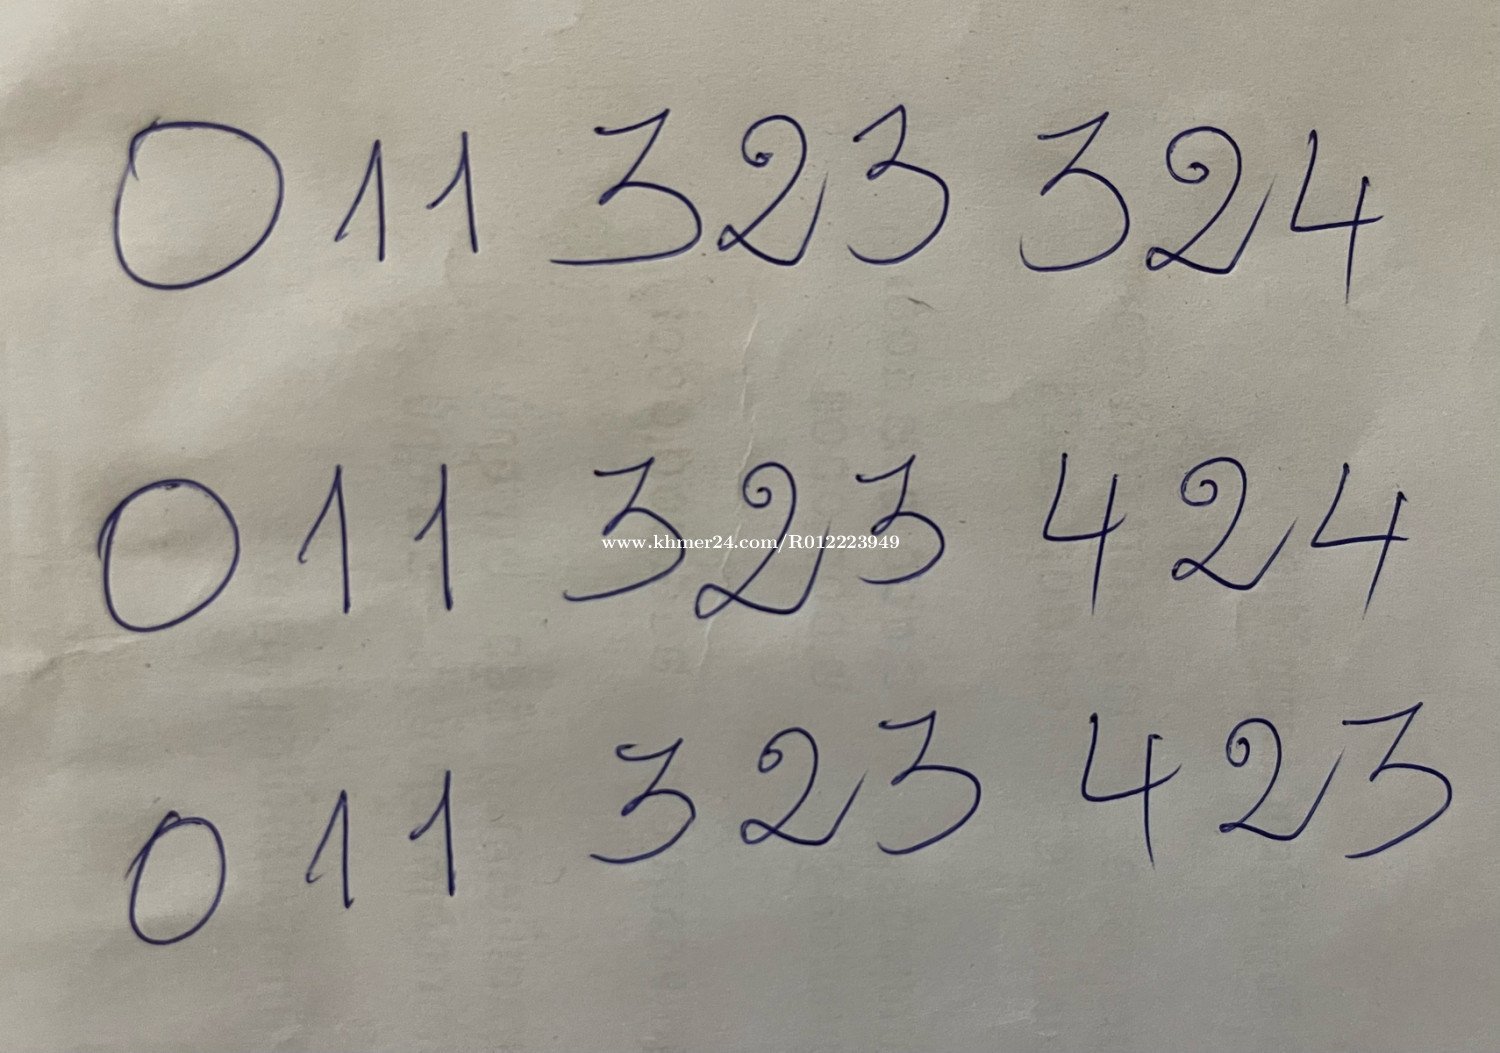 011 323 324
011 323 424
www.khmer24.com/R012223949
011 323 423